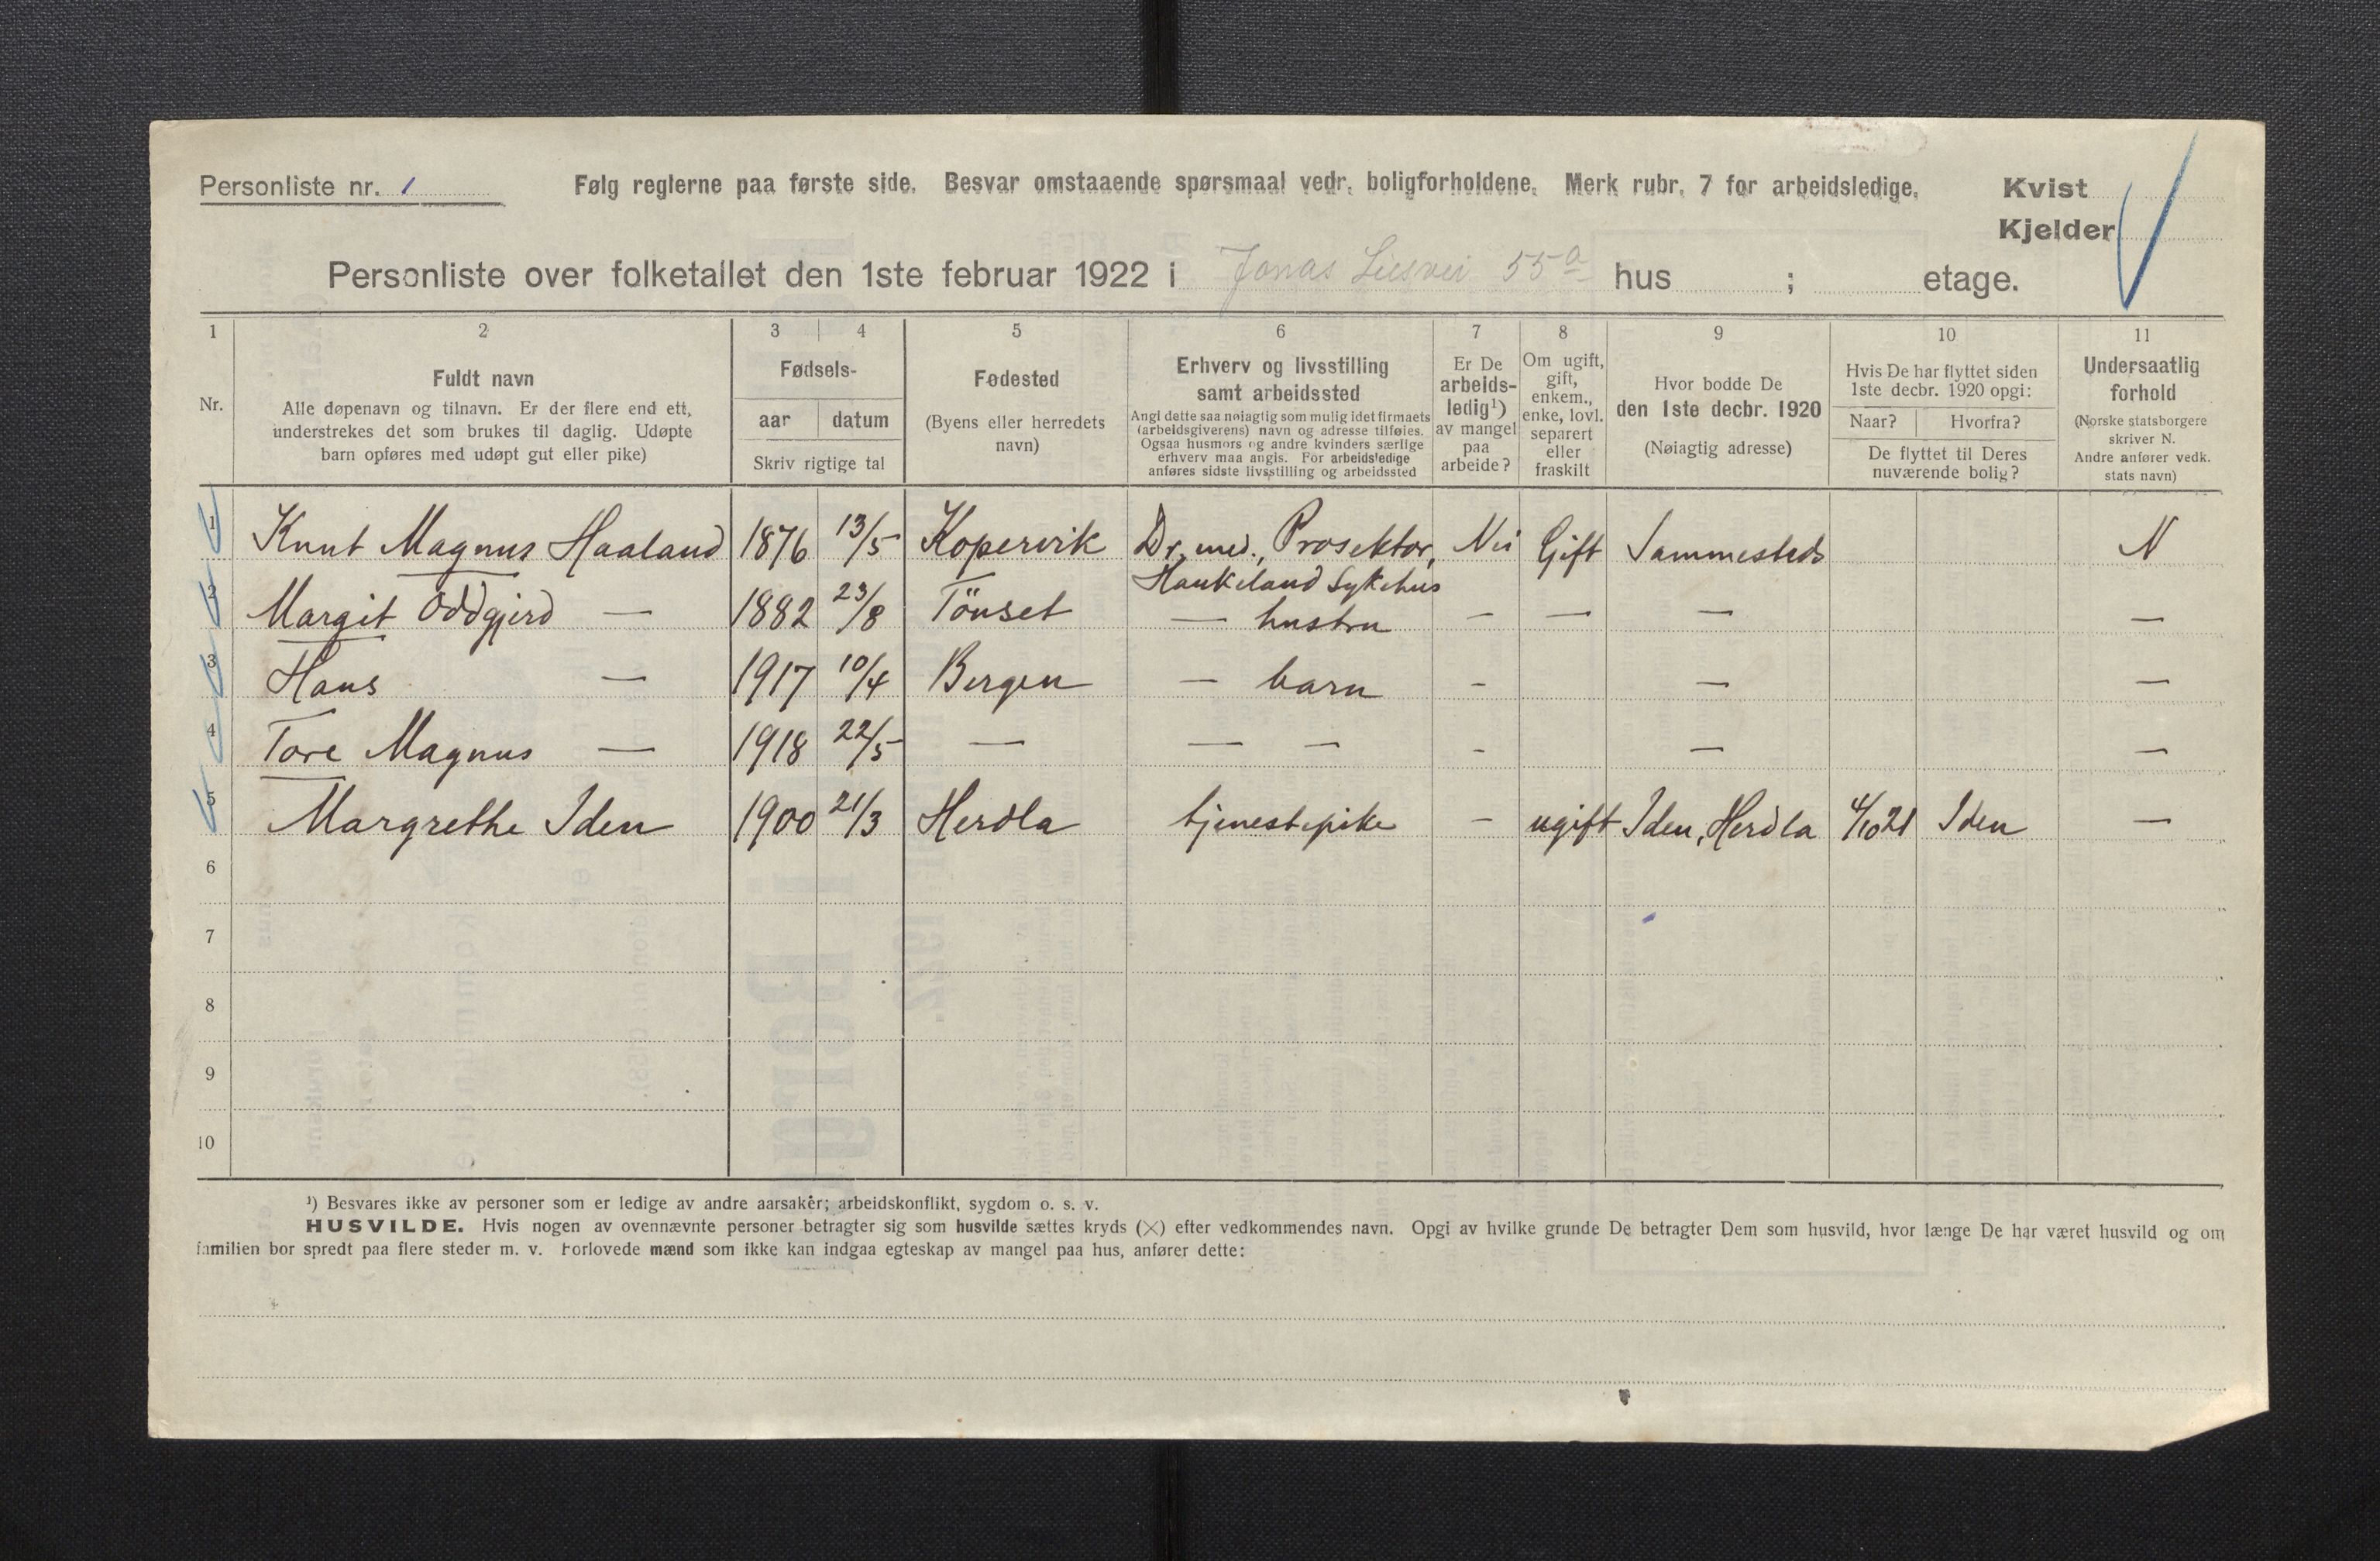 Personliste nr. 1
Følg reglerne paa første side. Besvar omstaaende spørsmaal vedr. boligforholdene. Merk rubr. 7 for arbeidsledige.
Kvist
Kjelder
Personliste over folketallet den 1ste februar 1922 i Jonas Liesvei 55a hus ; etage.
1 2 3 4 5 6 7 8 9 10 11
Nr.
Fuldt navn
Alle døpenavn og tilnavn. Er der flere end ett,
understrekes det som brukes til daglig. Udøpte
barn opføres med udøpt gut eller pike)
Fødsels-
aar datum
Skriv rigtige tal
Fødested
(Byens eller herredets
navn)
Erhverv og livsstilling
samt arbeidssted
Angi dette saa nøiagtig som mulig idet firmaets
(arbeidsgiverens) navn og adresse tilføies.
Ogsaa husmors og andre kvinders særlige
erhverv maa angis. For arbeidsledige
anføres sidste livsstilling og arbeidssted
Er De
arbeids-
ledig¹)
av mangel
paa
arbeide?
Om ugift,
gift,
enkem.,
enke, lovl.
separert
eller
fraskilt
Hvor bodde De
den 1ste decbr. 1920
(Nøiagtig adresse)
Hvis De har flyttet siden
1ste decbr. 1920 opgi:
Naar? Hvorfra?
De flyttet til Deres
nuværende bolig?
Undersaatlig
forhold
(Norske statsborgere
skriver N.
Andre anfører vedk.
stats navn)
1 Knut Magnus Haaland 1876 13/5 Kopervik Dr. med., Prosektor, Nei Gift Sammesteds N
Haukeland Sykehus
2 Margit Oddgjerd — 1882 23/8 Tönset — hustru — — — —
3 Hans — 1917 10/4 Bergen — barn - — —
4 Tore Magnus — 1918 22/5 — — — - — —
5 Margrethe Iden 1900 21/3 Herdla tjenestepike — ugift Iden, Herdla 4/10 21 Iden —
6
7
8
9
10
¹) Besvares ikke av personer som er ledige av andre aarsaker; arbeidskonflikt, sygdom o. s. v.
HUSVILDE. Hvis nogen av ovennævnte personer betragter sig som husvilde sættes kryds (×) efter vedkommendes navn. Opgi av hvilke grunde De betragter Dem som husvild, hvor længe De har været husvild og om
familien bor spredt paa flere steder m. v. Forlovede mænd som ikke kan indgaa egteskap av mangel paa hus, anfører dette: